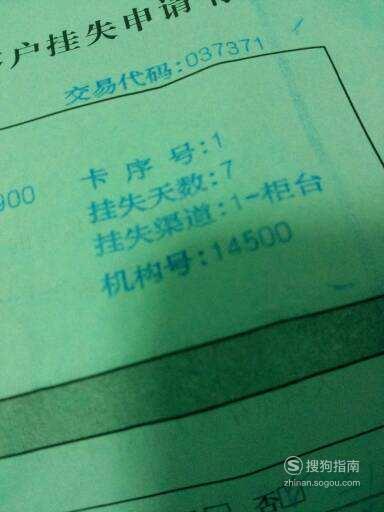 户挂失申请
交易代码:037371
900
卡 序 号:1
挂失天数:7
挂失渠道:1-柜台
机构号:14500
否
搜狗指南
zhinan.sogou.com